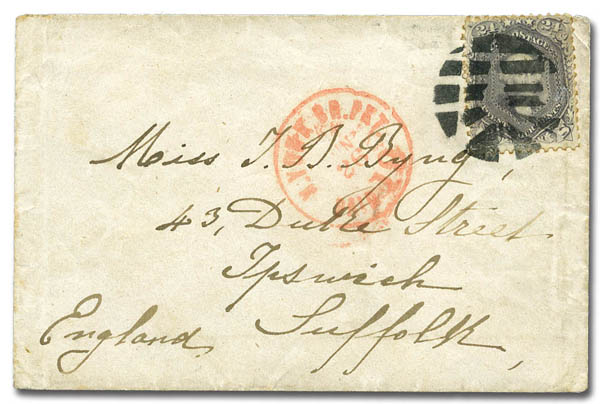 24 24
U.S. POSTAGE
N. YORK BR. PKT.
Miss J. B. Byng,
43, Duke Street
Ipswich
Suffolk,
England,